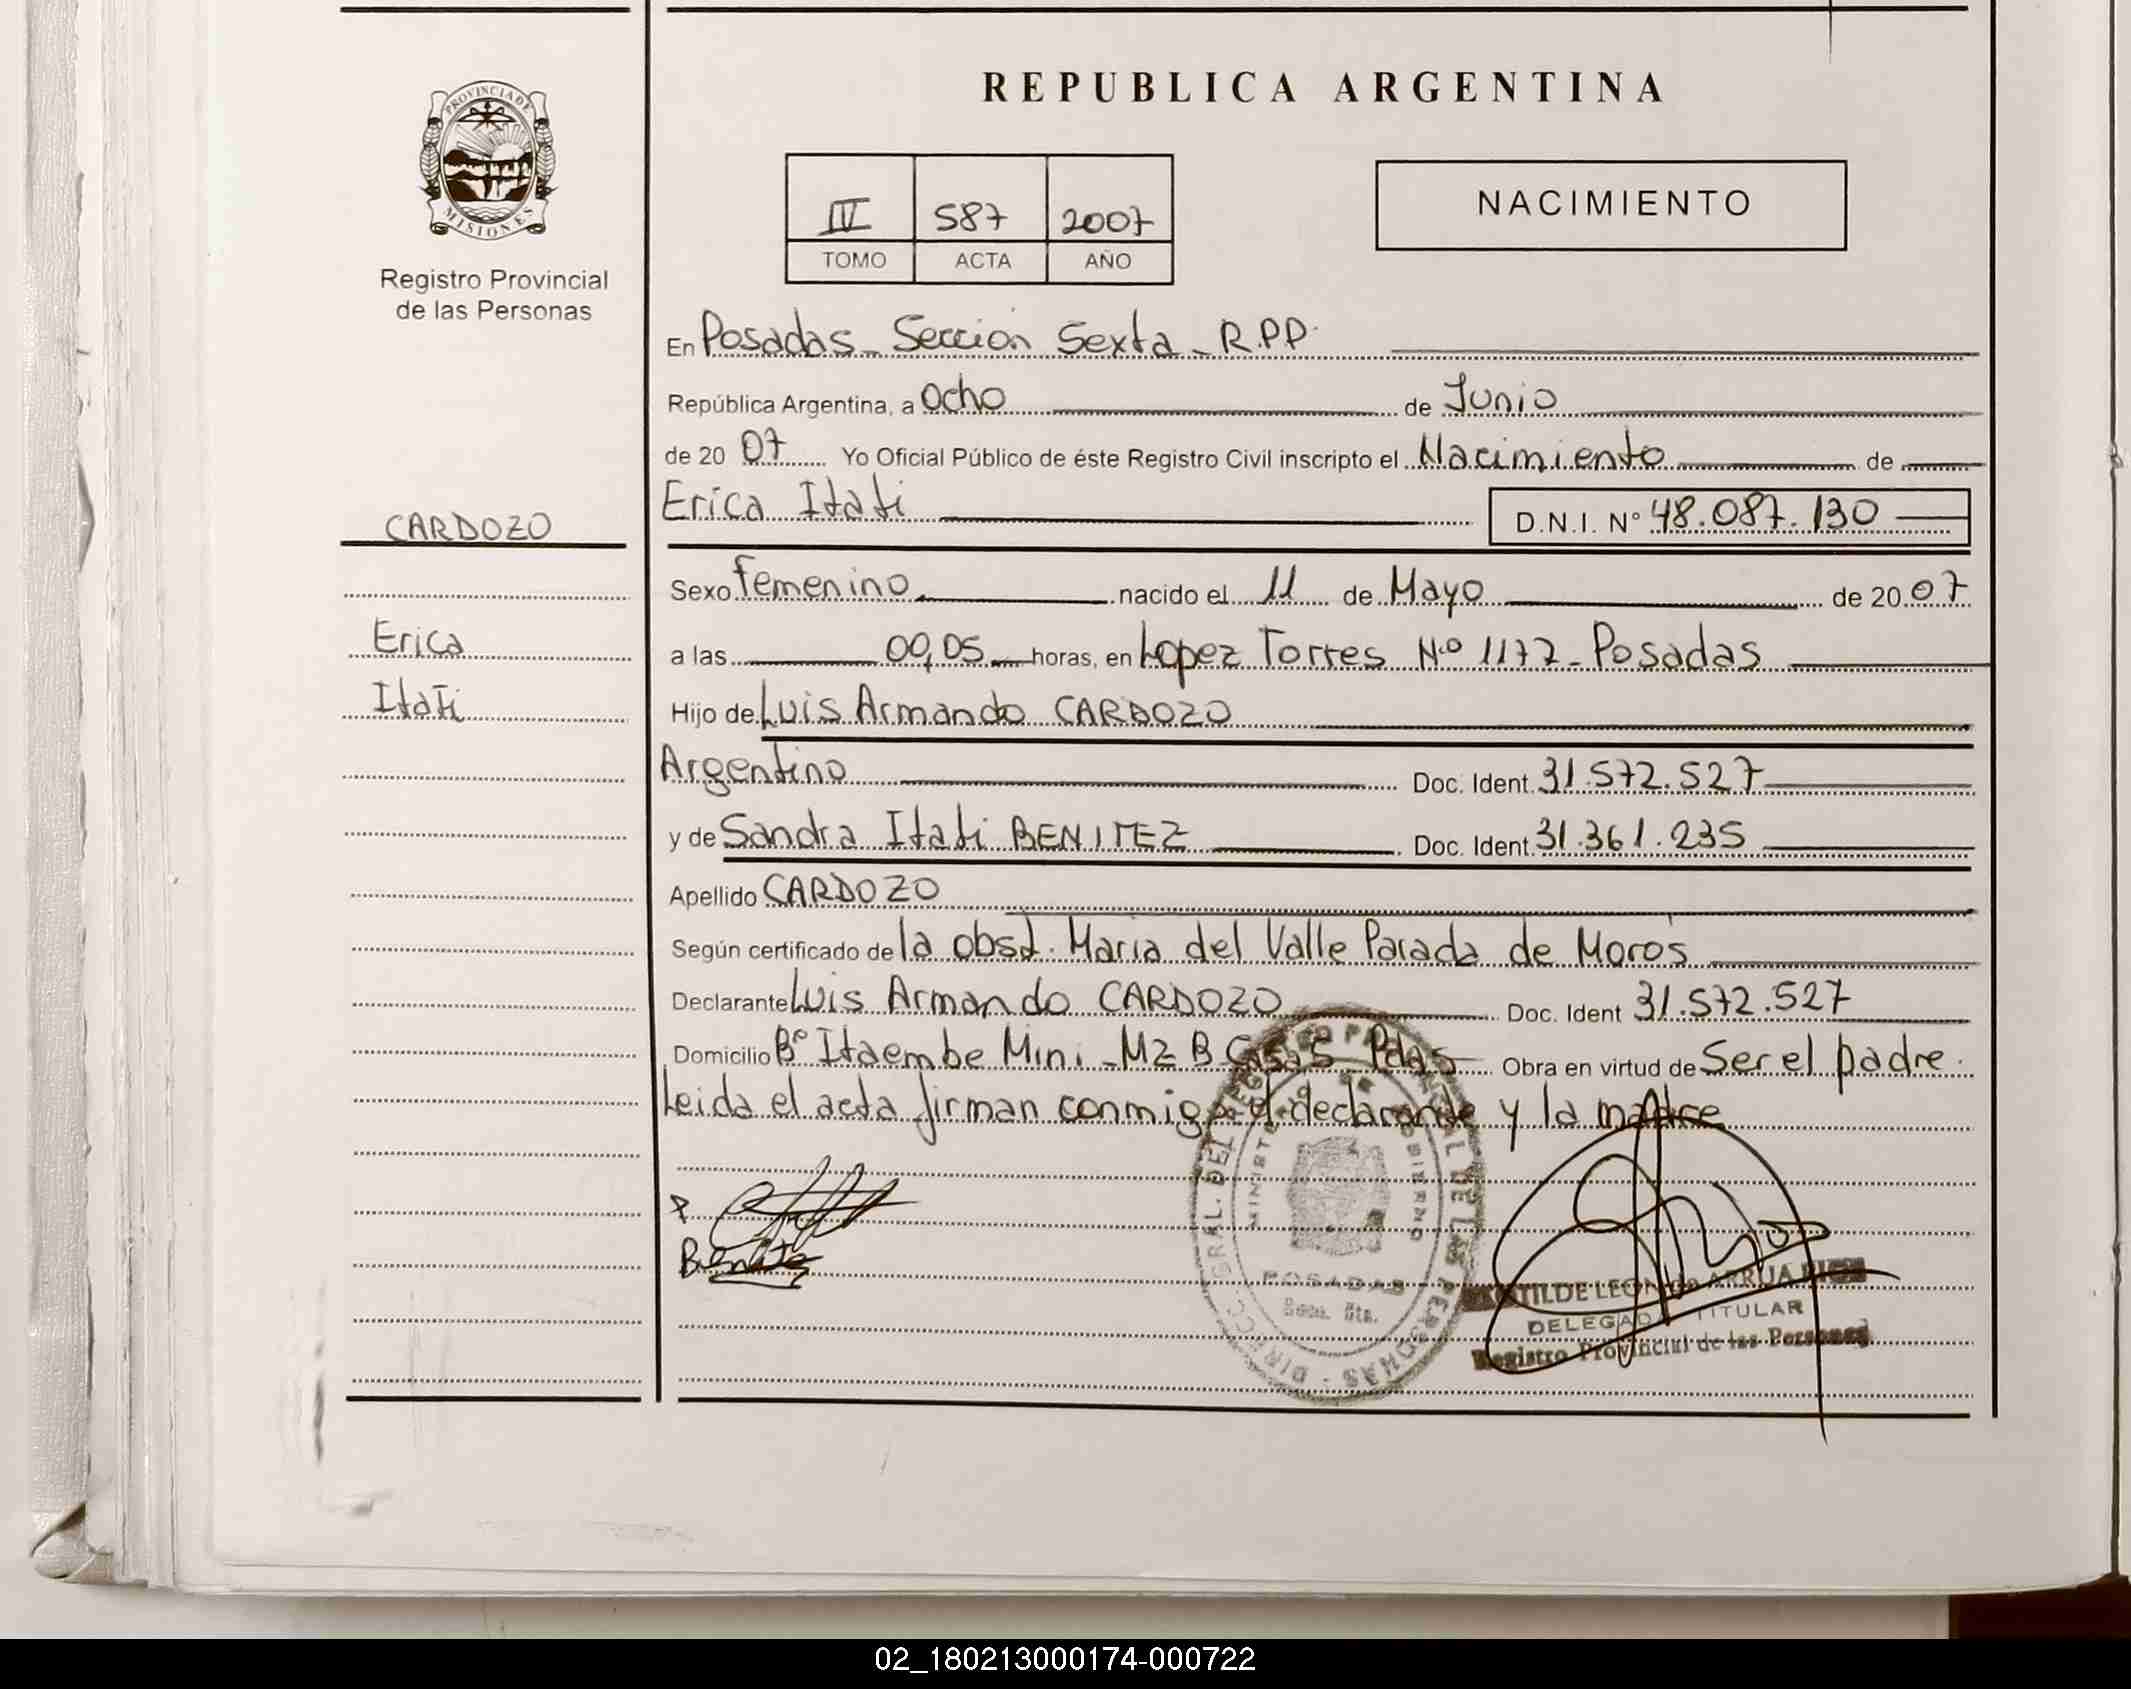 REPUBLICA ARGENTINA
PROVINCIA DE
MISIONES
Registro Provincial
de las Personas
IV 587 2007
TOMO ACTA AÑO
NACIMIENTO
En Posadas - Sección Sexta - R.P.P.
República Argentina, a Ocho de Junio
de 20 07 Yo Oficial Público de éste Registro Civil inscripto el Nacimiento de
Erica Itati D.N.I. Nº 48.087.130
CARDOZO
Erica
Itati
Sexo femenino nacido el 11 de Mayo de 20 07
a las 00,05 horas, en Lopez Torres Nº 1177 - Posadas
Hijo de Luis Armando CARDOZO
Argentino Doc. Ident. 31.572.527
y de Sandra Itati BENITEZ Doc. Ident. 31.361.235
Apellido CARDOZO
Según certificado de la obst. Maria del Valle Parada de Moros
Declarante Luis Armando CARDOZO Doc. Ident 31.572.527
Domicilio Bº Itaembe Mini - Mz B Casa 5 Pdas Obra en virtud de Ser el padre.
Leida el acta firman conmigo el declarante y la madre
Benitez
POSADAS
Secc. 6ta.
DELEGADA TITULAR
Registro Provincial de las Personas
02_180213000174-000722